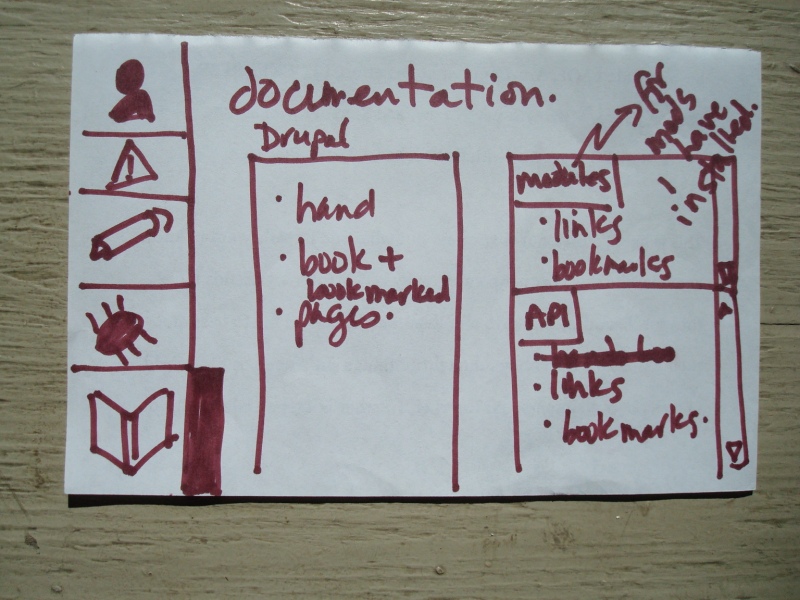 documentation.
Drupal
• hand
• book +
bookmarked
• pages.
modules
for
mods
I have
installed.
• links
• bookmarks
API
• links
• bookmarks.